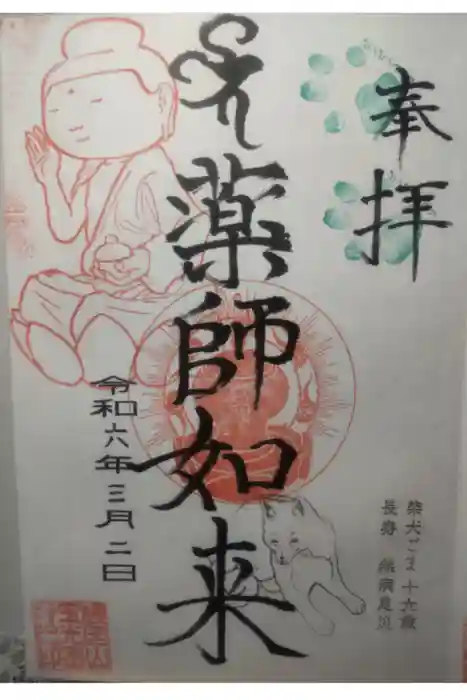 奉拝
薬師如来
令和六年三月二日
柴犬ごま 十六歳
長寿 無病息災